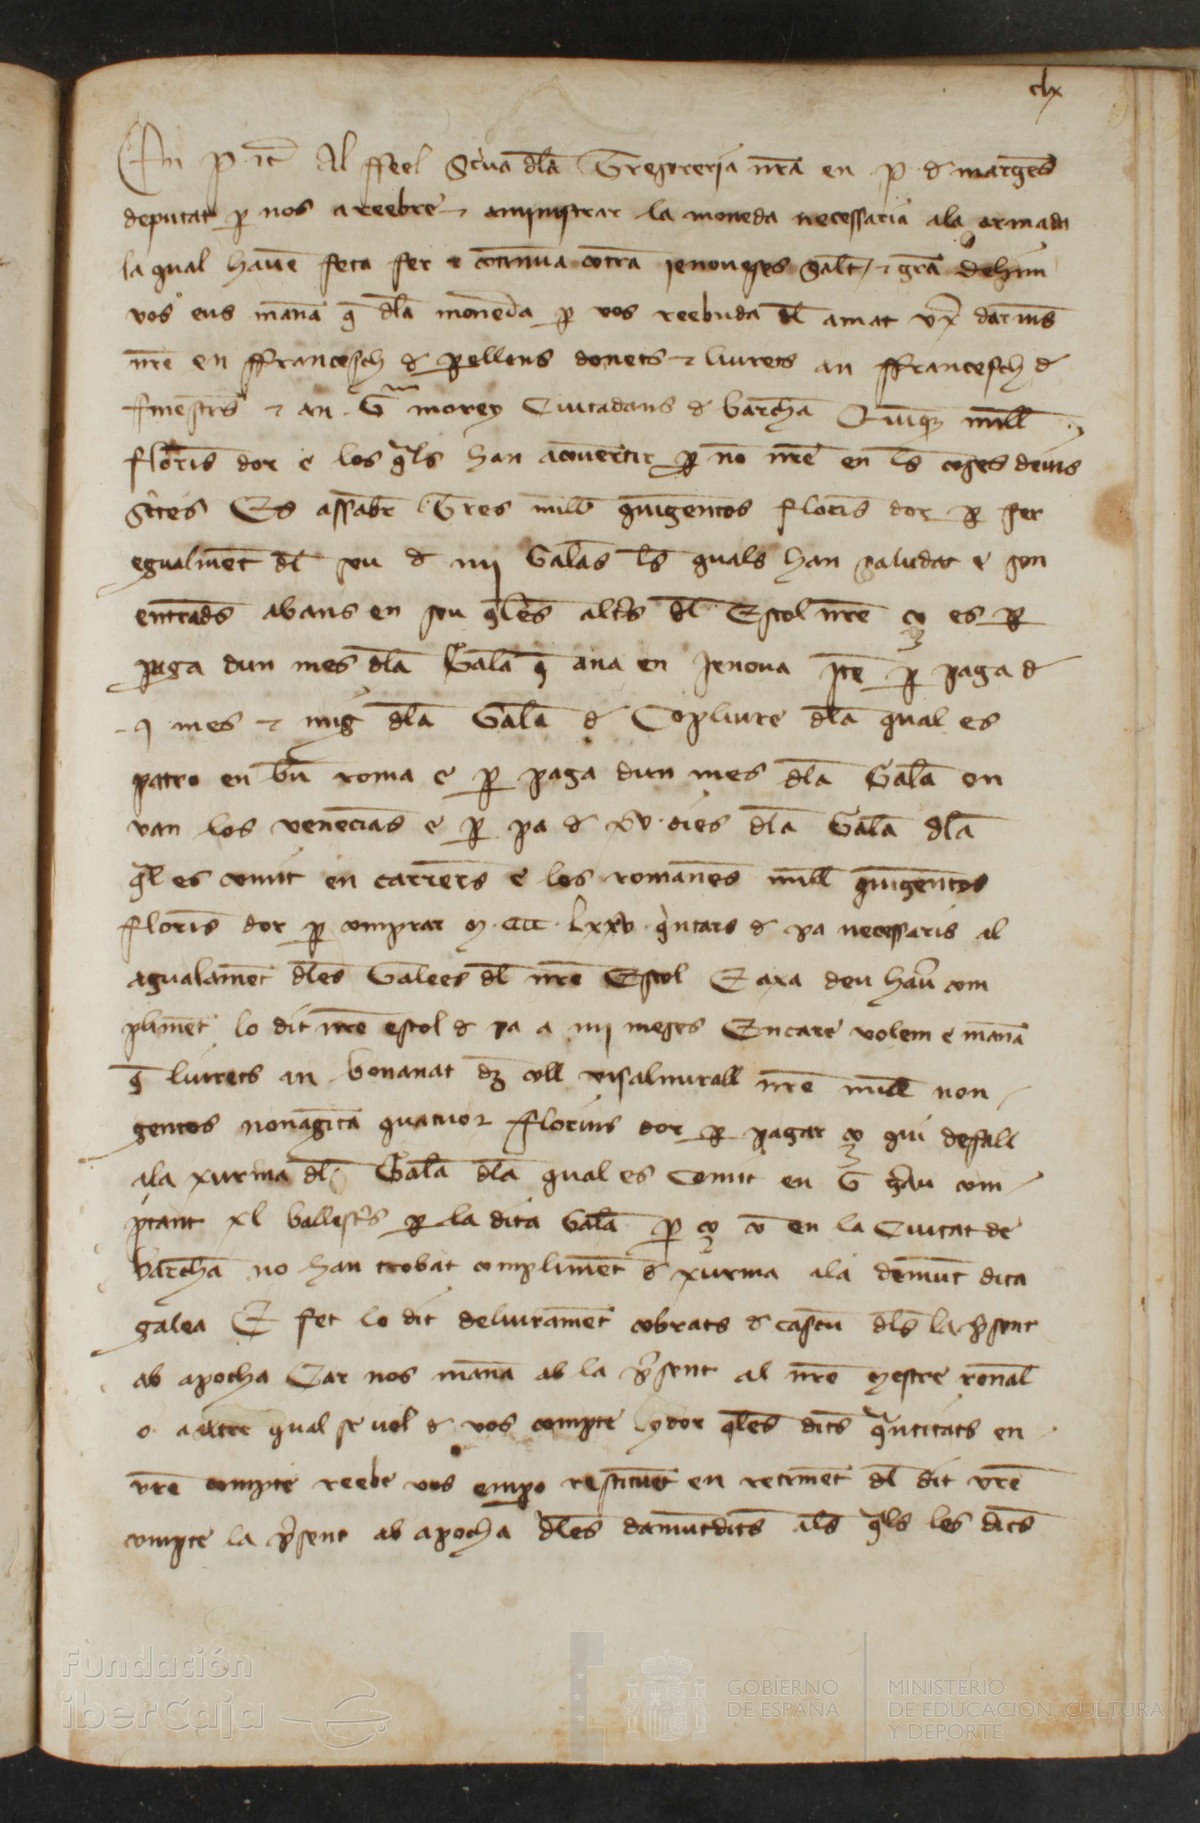 clx
En P etc Al ffeel Scva dla Tresoreria nra en P d marges
deputat p nos a reebre e aministrar la moneda necessaria ala armada
la qual havem feta fer e continua contra jenoveses Salt e gra dehim
vos eus manam q dla moneda p vos reebuda dl amat
nre en ffrancesch d pellons donets e liurets an ffrancesch d
finestrs e an Gm morey Ciutadans d barchna Quinq mill
florins dor e los qls han a convertir p no nre en ls coses deius
scrites Es assaber Tres mill quingentos florins dor p fer
egualment dl sou d iiij Galeas ls quals han saludat e son
entrads abans en sou qles altrs dl Estol nre ço es p
paga dun mes dla Galea q ana en Jenova Ite p paga d
j mes e mig dla Galea d Copliure dla qual es
patro en bn roma e p paga dun mes dla Galea on
van los venecians e p pa d xv dies dla Galea dla
ql es comit en carrers e los romanens mill quingentos
florins dor p comprar M CCC Lxxv quintars d pa necessaris al
agualament dles Galees dl nre Estol E axa deu haver com
pliment lo dit nre estol d pa a iiij meses Encare volem e manam
q liurets an bonanat dz coll visalmirall nre mill non
gentos nonaginta quatuor fflorins dor p pagar ço qui defall
ala xurma dl Galea dla qual es Comit en G grau com
ptant xl ballestrs p la dita Galea p ço co en la Ciutat de
barchna no han trobat compliment d xurma ala demunt dita
galea E fet lo dit deliurament cobrats d cascun dls la psent
ab apocha Car nos manam ab la psent al nre Mestre ronal
o a altre qual se vol d vos compte hydor qles dits quntitats en
vre compte reebe vos empo restituent en retiment dl dit vre
compte la psent ab apocha dles damuntdits als qls les dits
Fundación
iberCaja
GOBIERNO
DE ESPAÑA
MINISTERIO
DE EDUCACIÓN, CULTURA
Y DEPORTE